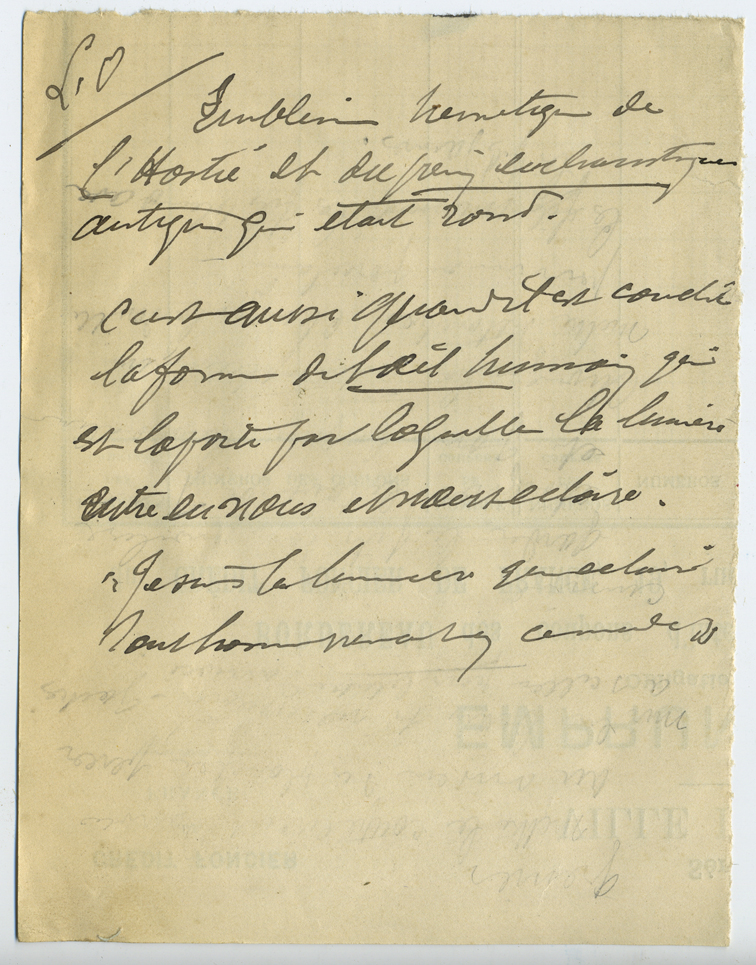 L. O
Emblème hermétique de
l'Hostie et du pain eucharistique
antique qui était rond.
C'est aussi quand il est couché
la forme de l'œil humain qui
est la porte par laquelle la lumière
entre en nous et nous éclaire.
"Je suis la lumière qui éclaire
tout homme venant en ce monde"